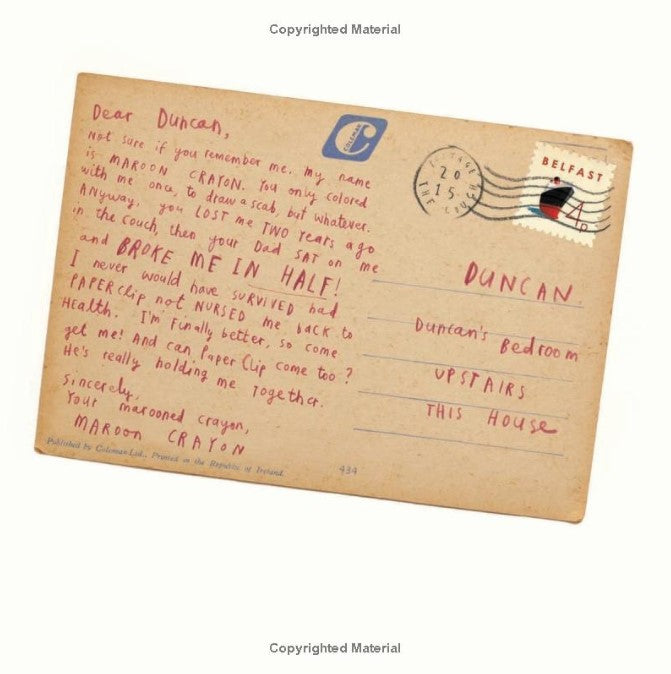 Copyrighted Material
Dear Duncan,
Not sure if you remember me. My name
is MAROON CRAYON. You only colored
with me once, to draw a scab, but whatever.
Anyway, you LOST me TWO Years ago
in the couch, then your Dad SAT on me
and BROKE ME IN HALF!
I never would have SURVIVED had
PAPERClip not NURSED me back to
Health. I'm Finally better, so come
get me! And can Paper Clip come too?
He's really holding me Together.
Sincerely,
Your marooned crayon,
MAROON CRAYON
Published by Coleman Ltd., Printed in the Republic of Ireland.
434
COLEMAN
20
15
BELFAST
4p
DUNCAN
Duncan's Bedroom
UPSTAIRS
THIS House
Copyrighted Material